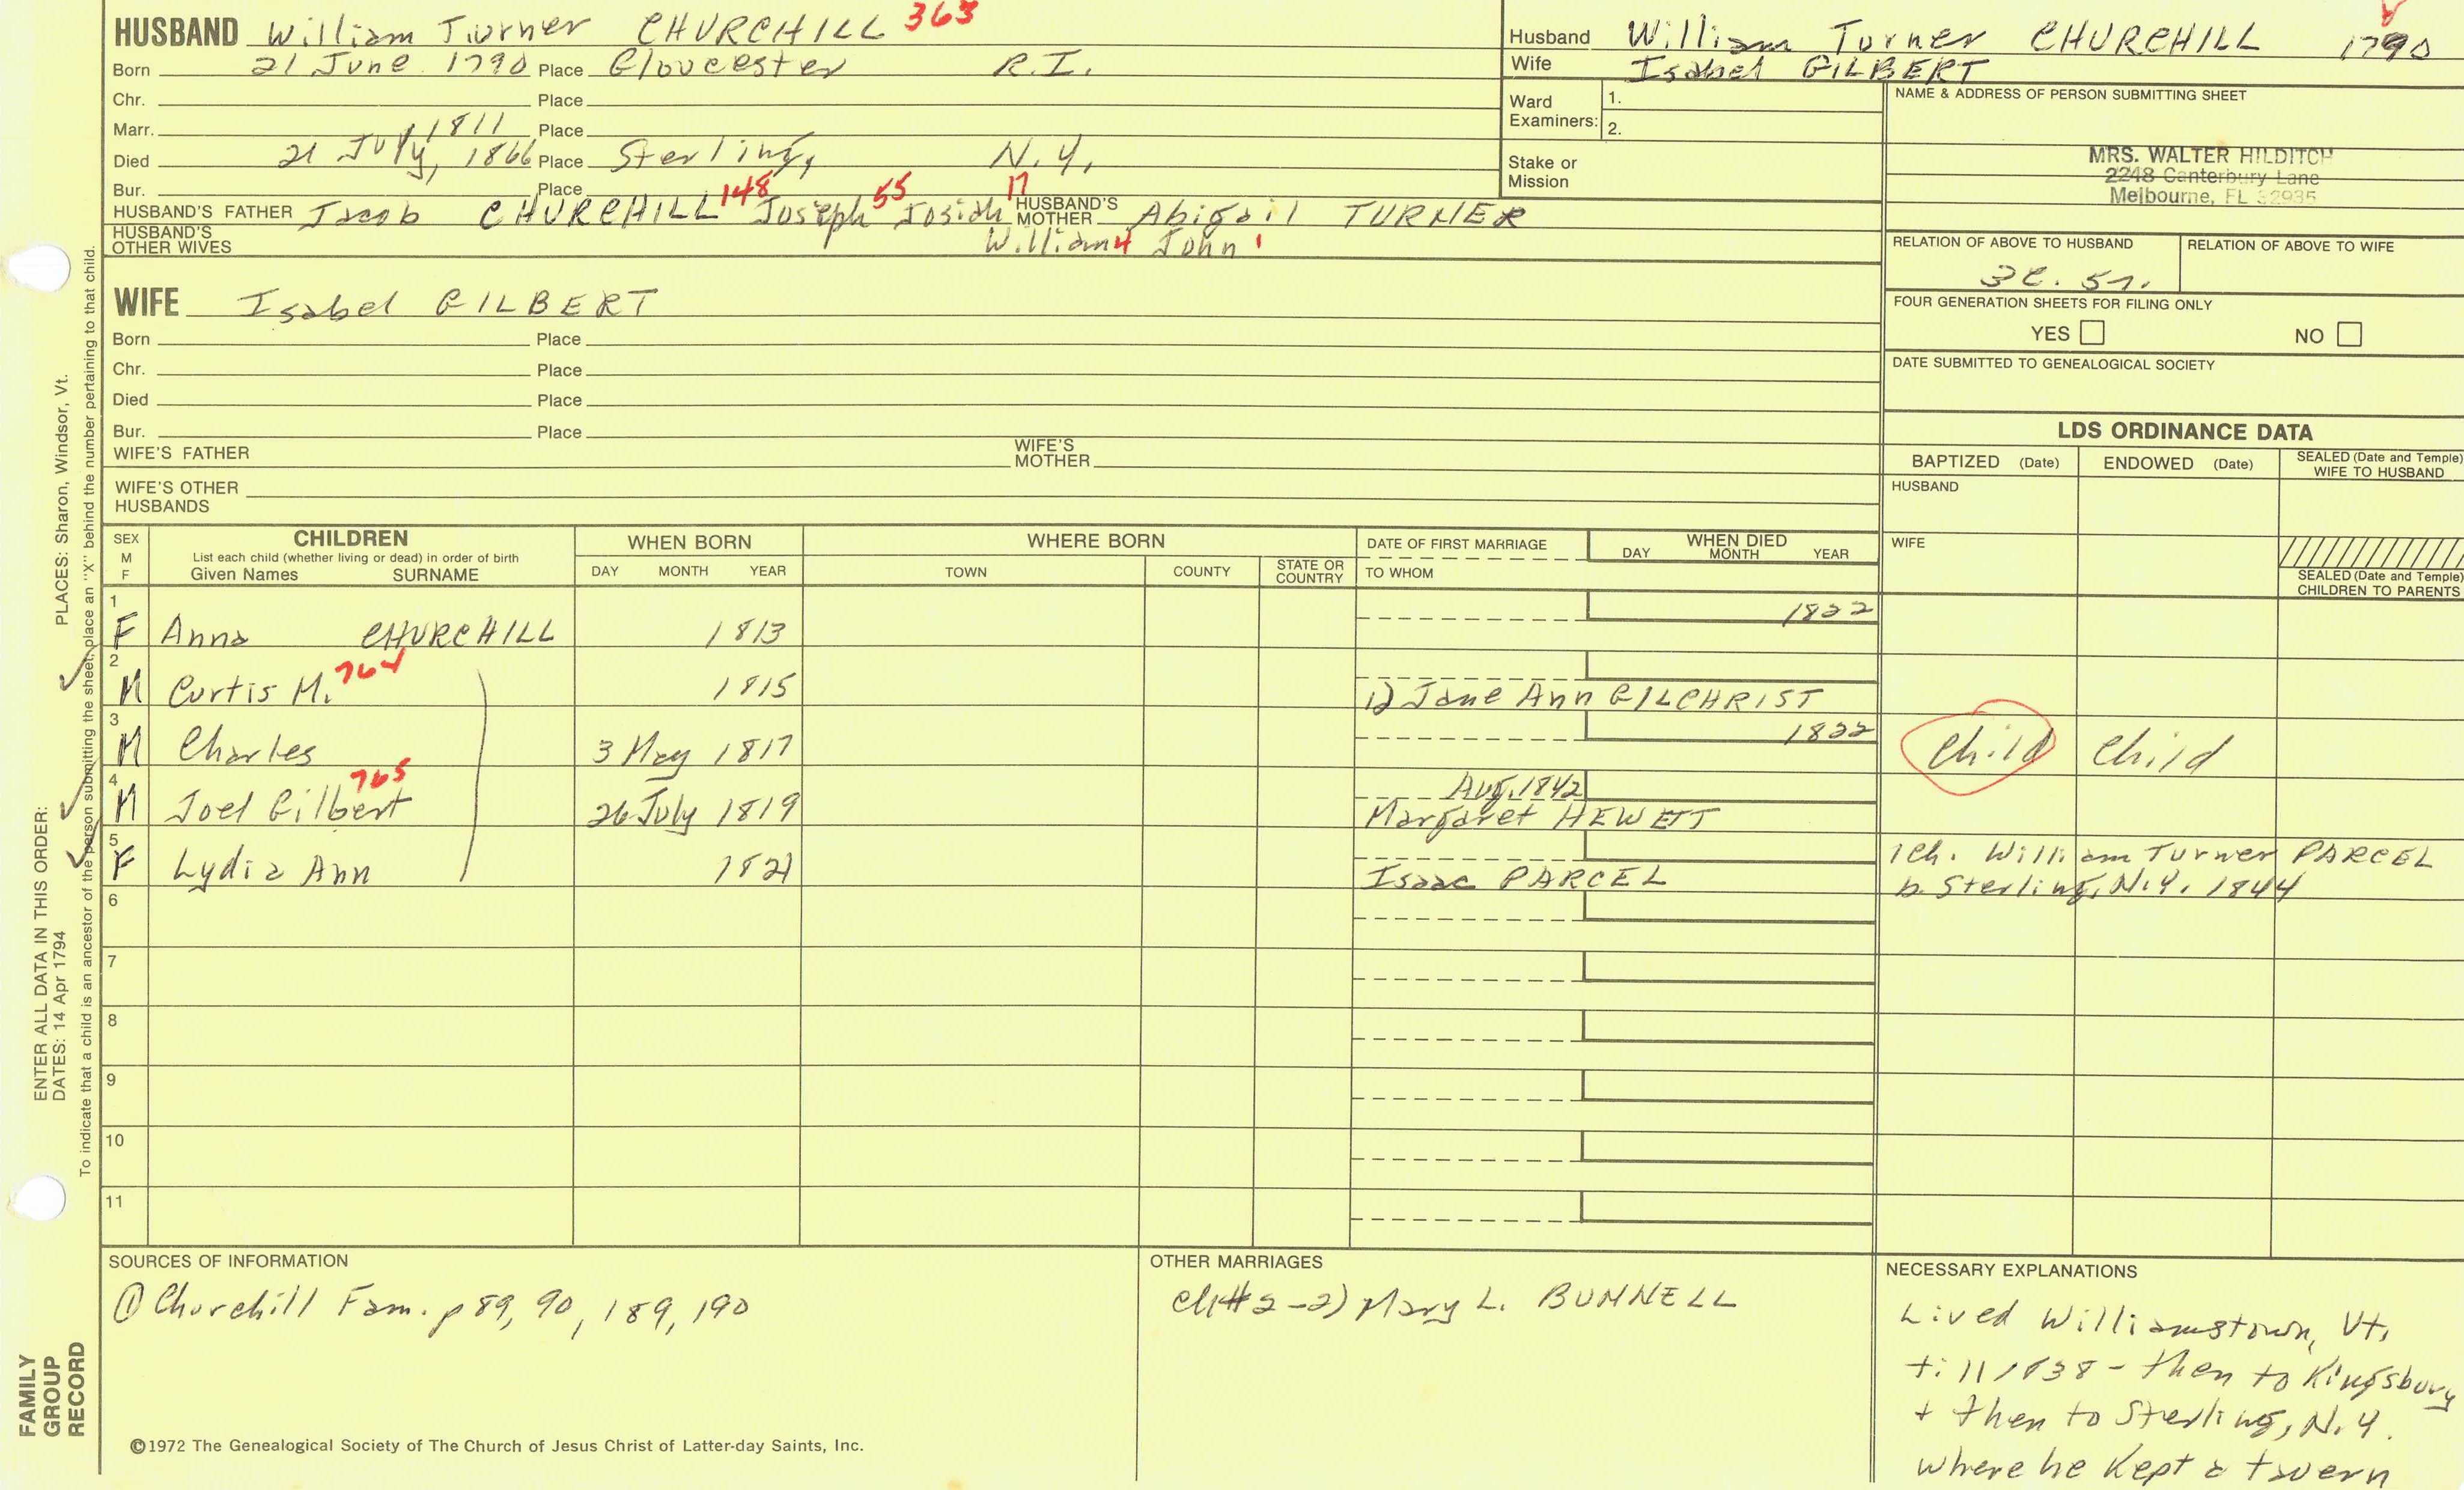 HUSBAND William Turner CHURCHILL 363
Born 21 June 1790 Place Gloucester R.I.
Chr. Place
Marr. 1811 Place
Died 21 July, 1866 Place Sterling, N.Y.
Bur. Place
HUSBAND'S FATHER Jacob CHURCHILL 148 Joseph 55 Josiah 17 HUSBAND'S MOTHER Abigail TURNER
HUSBAND'S OTHER WIVES William 4 John 1
WIFE Isabel GILBERT
Born Place
Chr. Place
Died Place
Bur. Place
WIFE'S FATHER WIFE'S MOTHER
WIFE'S OTHER HUSBANDS
Husband William Turner CHURCHILL 1790
Wife Isabel GILBERT
Ward Examiners: 1.
2.
Stake or Mission
NAME & ADDRESS OF PERSON SUBMITTING SHEET
MRS. WALTER HILDITCH
2248 Canterbury Lane
Melbourne, FL 32935
RELATION OF ABOVE TO HUSBAND RELATION OF ABOVE TO WIFE
3c. 5r.
FOUR GENERATION SHEETS FOR FILING ONLY
YES NO
DATE SUBMITTED TO GENEALOGICAL SOCIETY
LDS ORDINANCE DATA
BAPTIZED (Date) ENDOWED (Date) SEALED (Date and Temple) WIFE TO HUSBAND
HUSBAND
WIFE
SEALED (Date and Temple) CHILDREN TO PARENTS
SEX M F
CHILDREN
List each child (whether living or dead) in order of birth
Given Names SURNAME
WHEN BORN
DAY MONTH YEAR
WHERE BORN
TOWN COUNTY STATE OR COUNTRY
DATE OF FIRST MARRIAGE
TO WHOM
WHEN DIED
DAY MONTH YEAR
1 F Anna CHURCHILL 1813 1822
2 M Curtis M. 764 1815 1) Jane Ann GILCHRIST
3 M Charles 3 May 1817 1822 Child Child
4 M Joel Gilbert 765 26 July 1819 Aug. 1842
Margaret HEWETT
5 F Lydia Ann 1821 Isaac PARCEL
1 ch. William Turner PARCEL
b. Sterling, N.Y. 1844
6
7
8
9
10
11
SOURCES OF INFORMATION
① Churchill Fam. p 89, 90, 189, 190
OTHER MARRIAGES
ch # 2-2) Mary L. BUNNELL
NECESSARY EXPLANATIONS
Lived Williamstown, Vt.
till 1838 - then to Kingsbury
+ then to Sterling, N.Y.
where he kept a tavern
©1972 The Genealogical Society of The Church of Jesus Christ of Latter-day Saints, Inc.
PLACES: Sharon, Windsor, Vt.
ENTER ALL DATA IN THIS ORDER:
DATES: 14 Apr 1794
To indicate that a child is an ancestor of the person submitting the sheet, place an "X" behind the number pertaining to that child.
FAMILY
GROUP
RECORD